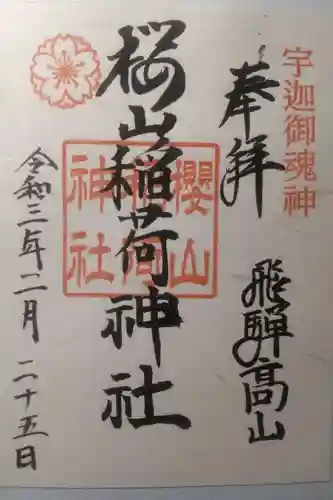 宇迦御魂神
奉拝
飛騨高山
桜山稲荷神社
櫻山
稲荷
神社
令和三年二月二十五日